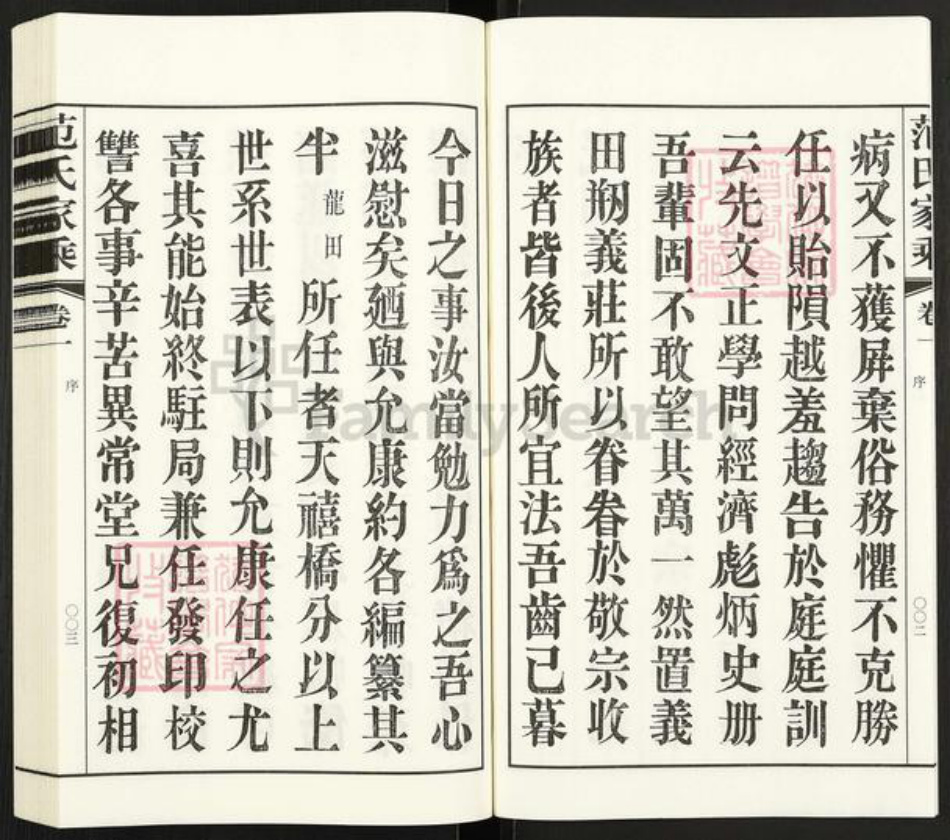 病又不獲屏棄俗務懼不克勝
任以貽隕越羞趨告於庭庭訓
云先文正學問經濟彪炳史册
吾輩固不敢望其萬一然置義
田剏義莊所以眷眷於敬宗收
族者皆後人所宜法吾齒已暮
范氏家乘
卷一
序
〇〇二
今日之事汝當勉力爲之吾心
滋慰矣廼與允康約各編纂其
半龍田所任者天禧橋分以上
世系世表以下則允康任之尤
喜其能始終駐局兼任發印校
讐各事辛苦異常堂兄復初相
范氏家乘
卷一
序
〇〇三
FamilySearch